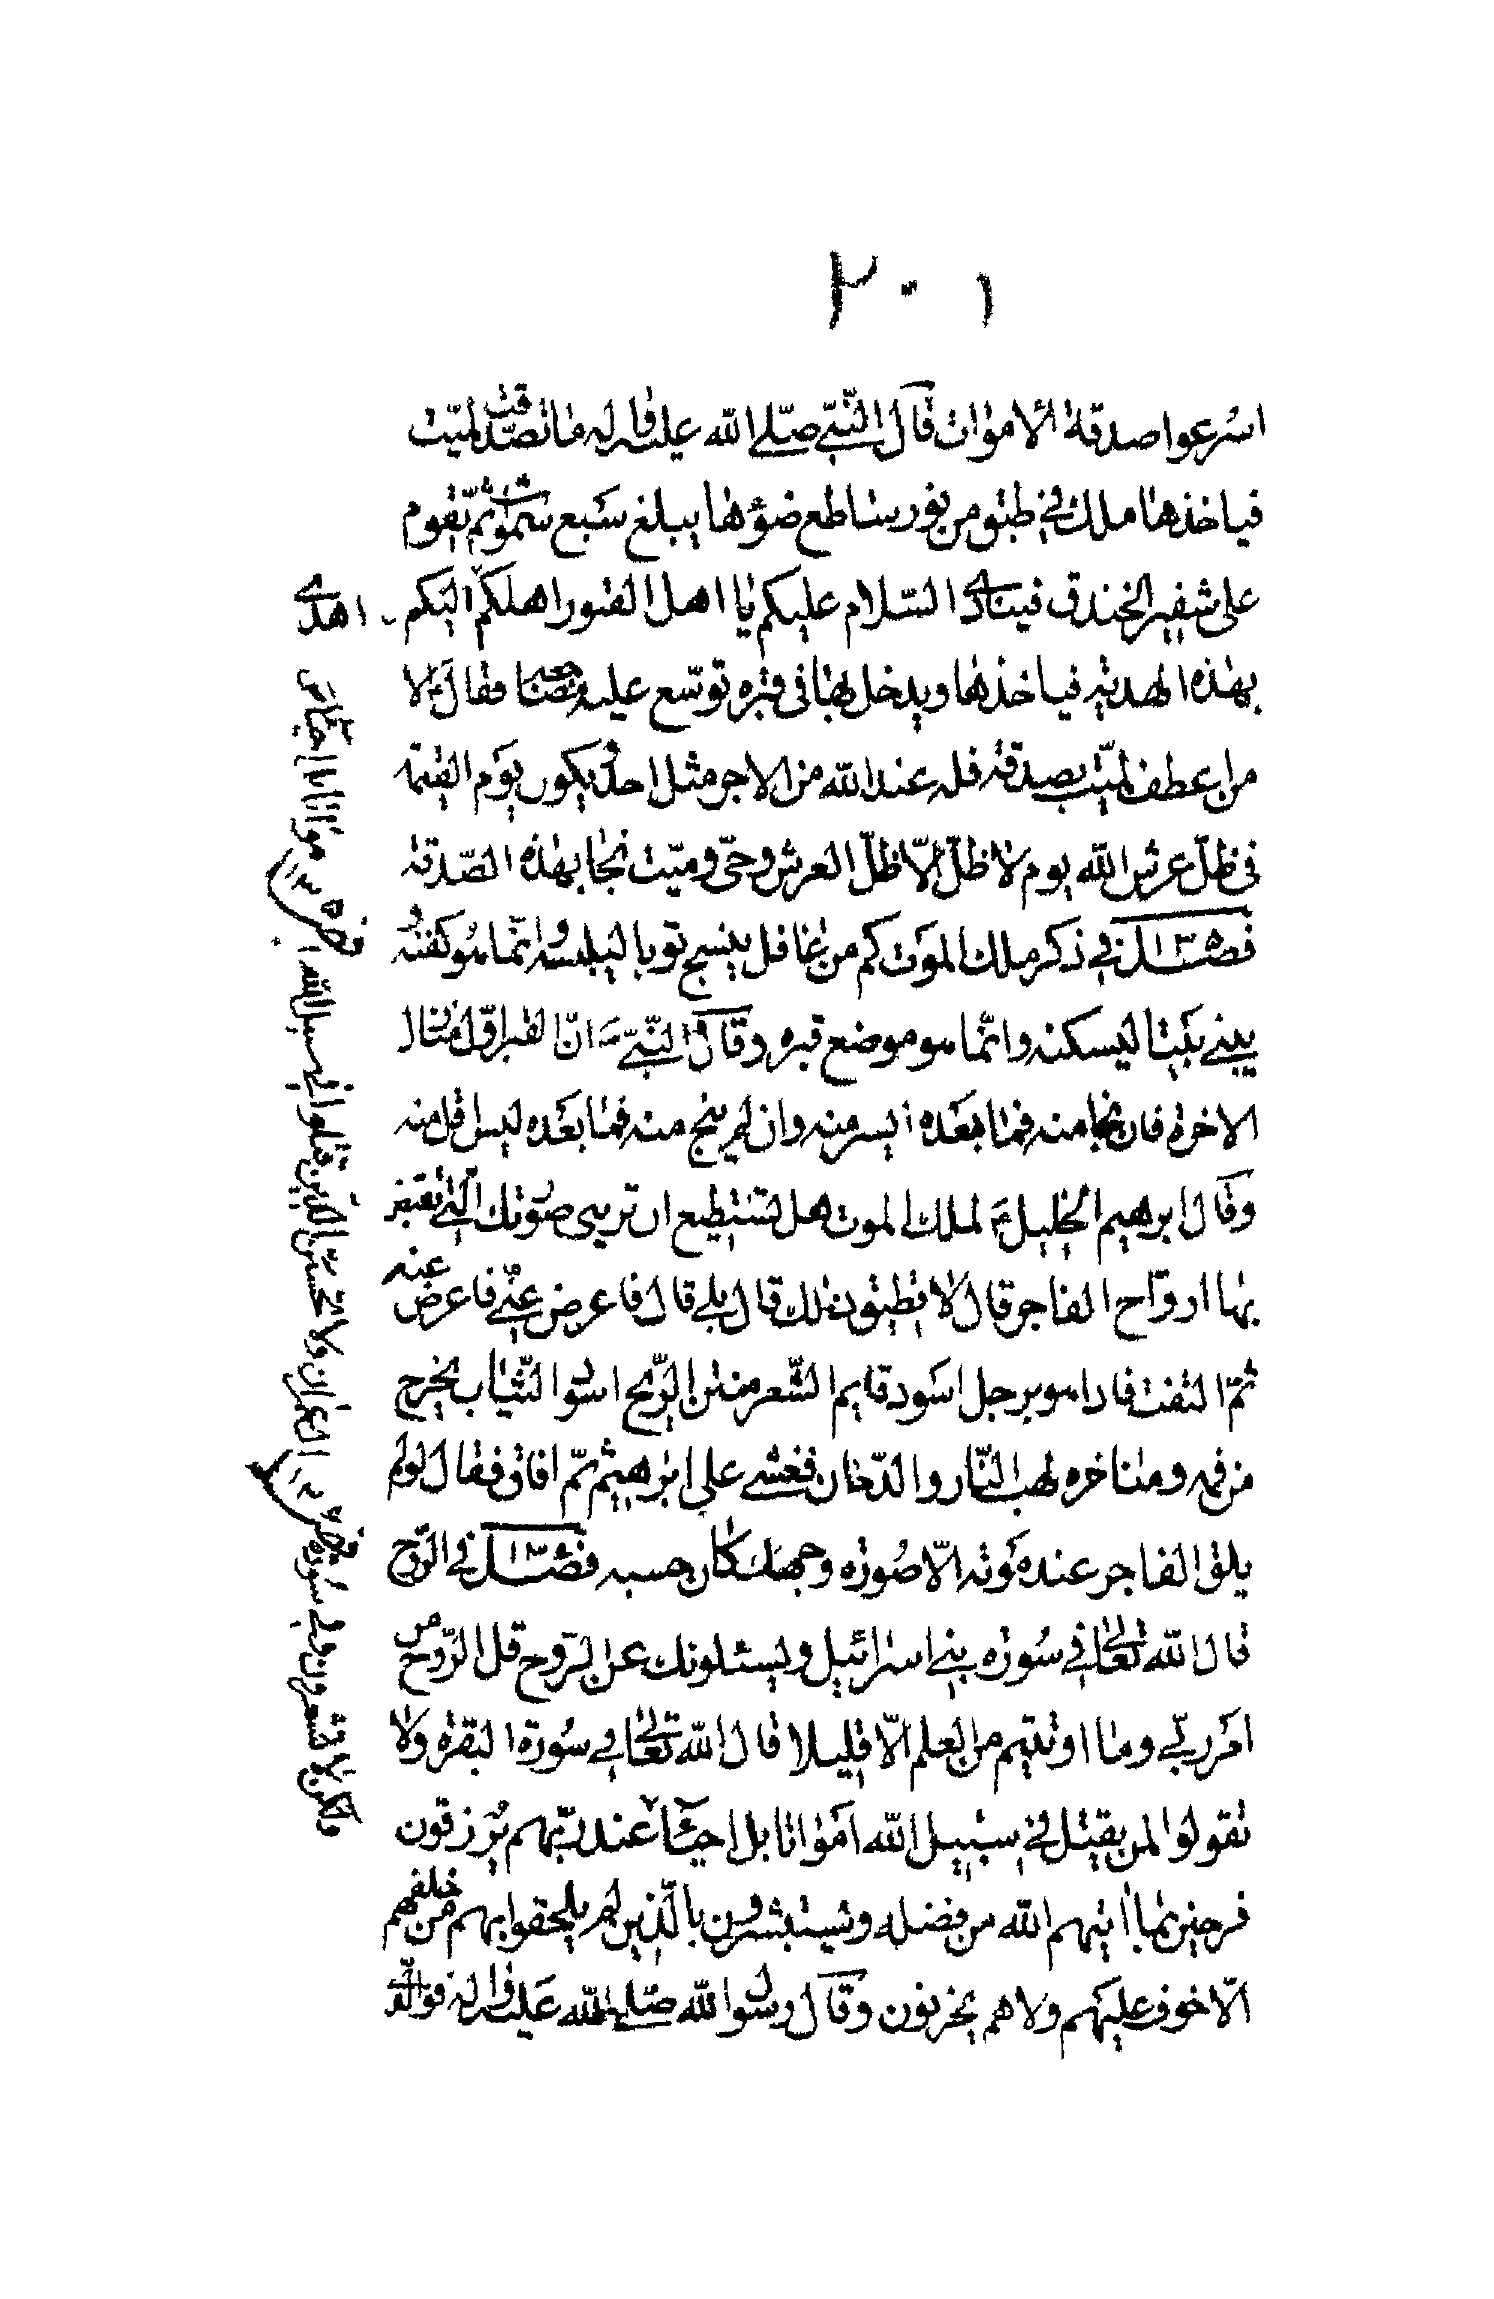 ٢٠١
اسرعوا صدقة الاموات قال النّبيّ صلّى الله عليه واله ما تصدّقت لميّت
فياخذها ملك في طبق من نور ساطع ضوؤها يبلغ سبع سموات ثمّ يقوم
على شفير الخندق فينادى السّلام عليكم يا اهل القبور اهلكم اليكم اهدى
بهذه الهديّة فياخذها ويدخل بها في قبره توسّع عليه مضاجعه فقال ع الا
من اعطف لميّت بصدقة فله عند الله من الاجر مثل احد ويكون يوم القيمة
في ظلّ عرش الله يوم لا ظلّ الّا ظلّ العرش وحيّ وميّت نجا بهذه الصّدقة
فصل في ذكر ملك الموت كم من غافل ينسج ثوبا ليلبسه وانّما هو كفنه
يبني بيتا ليسكنه وانّما هو موضع قبره وقال النّبيّ ص انّ القبر اوّل منازل
الاخرة فان نجا منه فما بعده ايسر منه وان لم ينج منه فما بعده ليس اقل منه
وقال ابرهيم الخليل ع لملك الموت هل تستطيع ان تريني صورتك الّتي تقبض
بها ارواح الفاجر قال لا تطيق ذلك قال بلى قال فاعرض عنّي فاعرض عنه
ثمّ التفت فاذا هو برجل اسود قايم الشّعر منتن الرّيح اسود الثّياب يخرج
من فمه ومناخره لهب النّار والدّخان فغشي على ابرهيم ثمّ افاق فقال لو لم
يلق الفاجر عند موته الّا صورة وجهك كان حسبه فصل في الرّوح
قال الله تعالى في سورة بني اسرائيل ويسئلونك عن الرّوح قل الرّوح من
امر ربّي وما اوتيتم من العلم الّا قليلا قال الله تعالى في سورة البقرة ولا
تقولوا لمن يقتل في سبيل الله امواتا بل احياء عند ربّهم يرزقون
فرحين بما اتيهم الله من فضله ويستبشرون بالّذين لم يلحقوا بهم من خلفهم
الّا خوف عليهم ولا هم يحزنون وقال رسول الله صلّى الله عليه واله فوالّذي
ولكن لا تشعرون وفي سورة ال عمران ولا تحسبنّ الّذين قتلوا في سبيل الله امواتا بل احياء